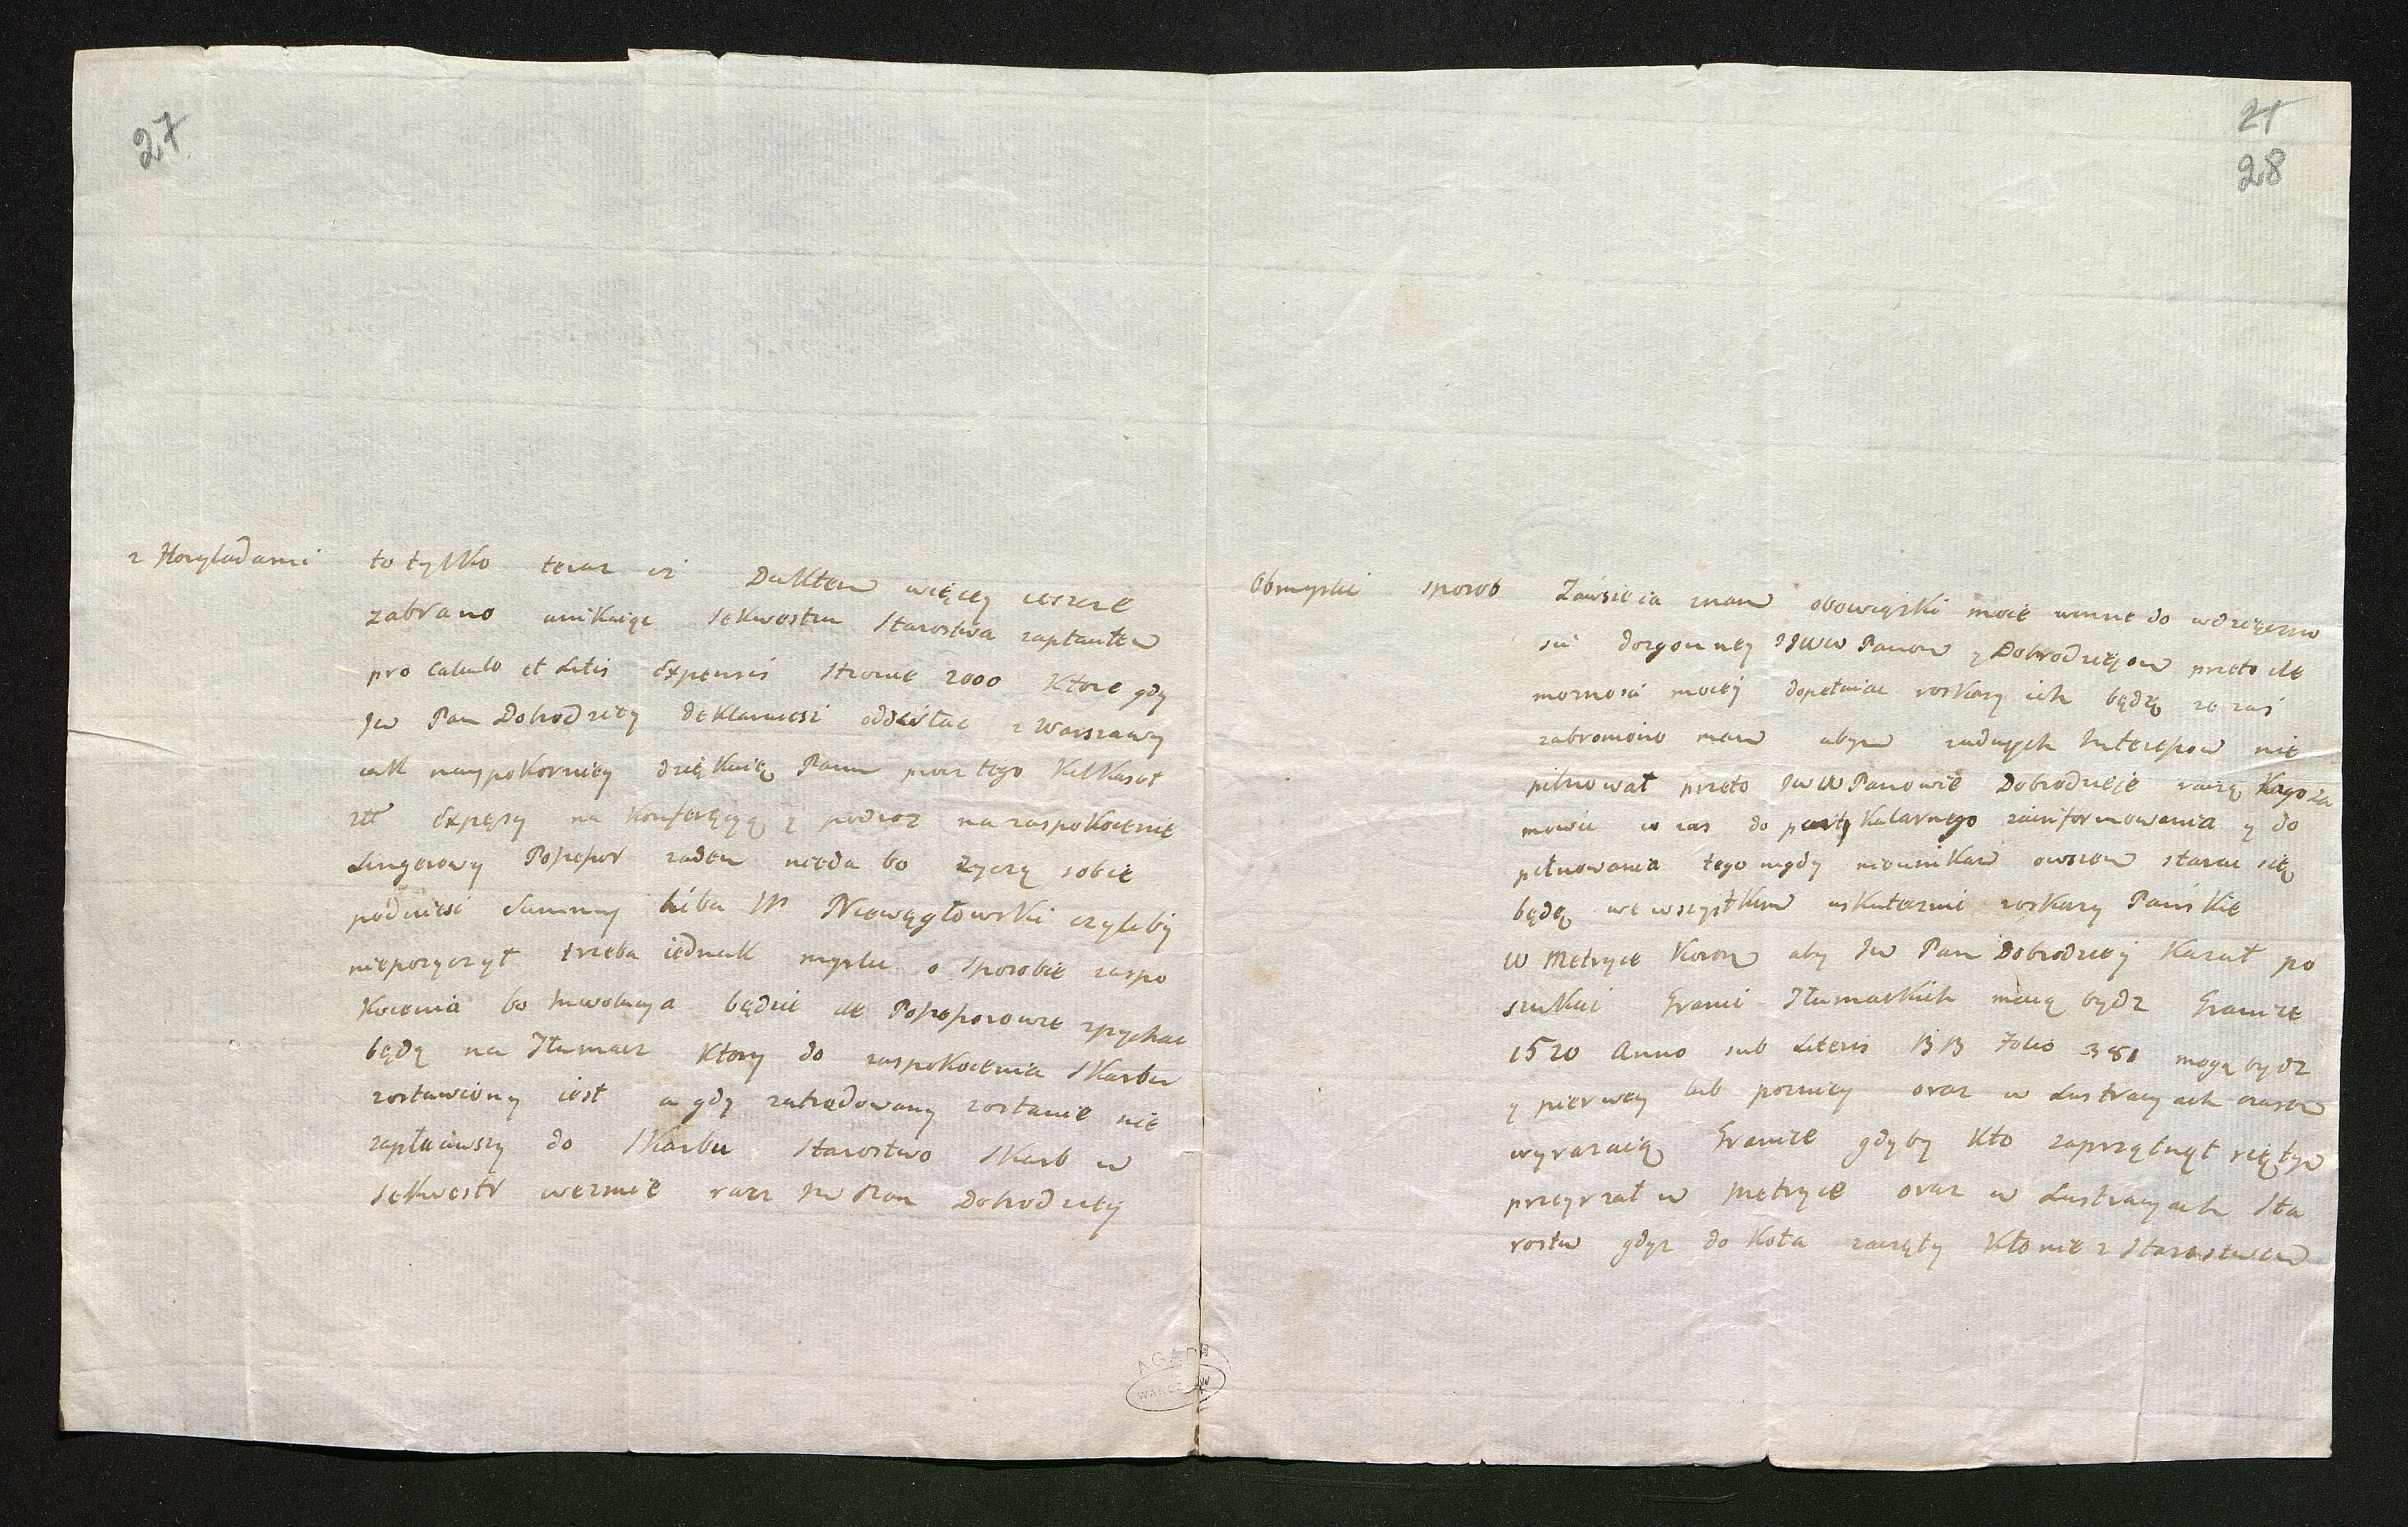 27
z Horyladami to tylko teraz iż Duktem więcey ieszcze
zabrano unikaiąc sekwestru Starostwa zapłaiłem
pro calculo et Litis Expensis Strone 2000 ktore gdy
JW Pan Dobrodziey deklaruiesz oddesłac z Warszawy
iak naypokorniey dziękuię Panu procz tego kilkaset
złł Expęsy na Konferęcyą y podroz na zaspokoienie
Lingerowy Possessor zaden nieda bo zyczą sobie
podniesc Summy liba JP Niewęgłowski czyliby
niepozyczył trzeba iednak myslic o sposobie zaspo
koienia bo będzie ile Possessorowie zpychac
będą na Tłumacz ktory do zaspokoienia Skarbu
zostawiony iest a gdy zatradowany zostanie nie
zapłaciwszy do Skarbu Starostwo Skarb w
Sekwestr wezmie racz JW Pan Dobrodziey
21
28
Obmyslic sposob Zawsze ia znam obowiązki moie winne do wdzięczno
sci dozgonney JJWW Panow y Dobrodzieiow przeto ile
moznosci moiey dopełniac roskazy ich będę ze zas
zabroniono mam abym zadnych Interessow nie
pilnował przeto JWW Panowie Dobrodzieje raczą kogo za
mowic w zas do partykularnego zainformowania y do
pilnowania tego nigdy nieunikam owszem starac się
będę we wszystkim uskutecznic roskazy Pańskie
W Metryce Koron aby JW Pan Dobrodziey kazał po
szukac Granic Tłumackich maią bydz Granice
1520 Anno sub Literis BB Folio 381 mogą bydz
y pierwey lub pozniey oraz w Lustracyach czasem
wyrazaią Granice gdyby kto zaprzątnął się tym
przeyrzał w Metryce oraz w Lustracyach Sta
rostw gdyz do Koła zaczęty Kłonie z Starostwem
AGAD
WARSZAWA